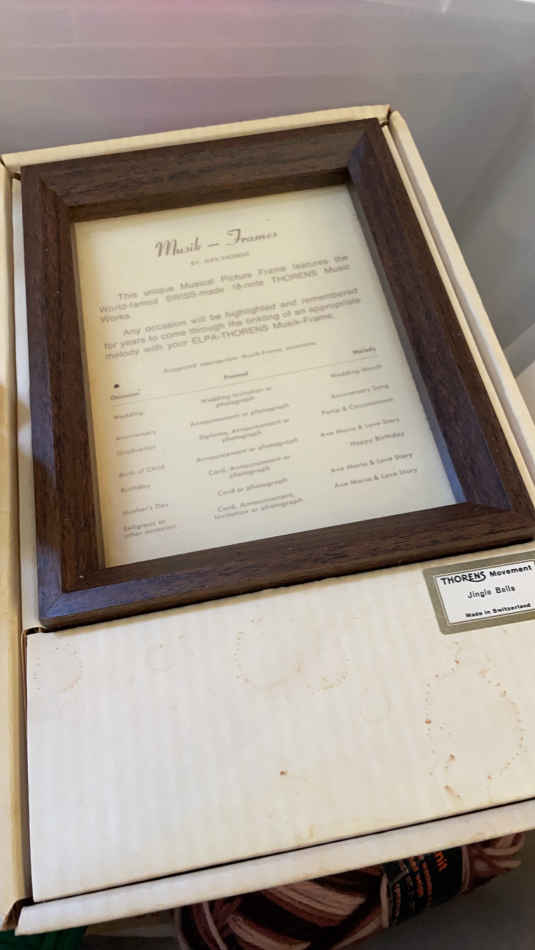 Musik – Frames
BY ELPA-THORENS
This unique Musical Picture Frame features the
World-famed SWISS-made 18-note THORENS Music
Works.
Any occasion will be highlighted and remembered
for years to come through the tinkling of an appropriate
melody with your ELPA-THORENS Musik-Frame.
Suggested Musik-Frame
Occasion Framed Melody
Wedding Wedding Invitation or photograph Wedding March
Anniversary Announcement or photograph Anniversary Song
Graduation Diploma, Announcement or photograph Pomp & Circumstance
Birth of Child Announcement or photograph Ave Maria & Love Story
Birthday Card, Announcement or photograph Happy Birthday
Mother's Day Card or photograph Ave Maria & Love Story
Religious or other occasion Card, Announcement, Invitation or photograph Ave Maria & Love Story
THORENS Movement
Jingle Bells
Made in Switzerland